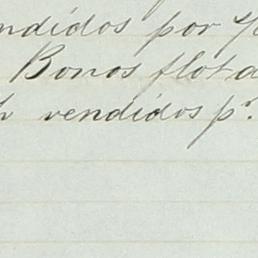 ndidos por
Bonos flota
vendidos pr.